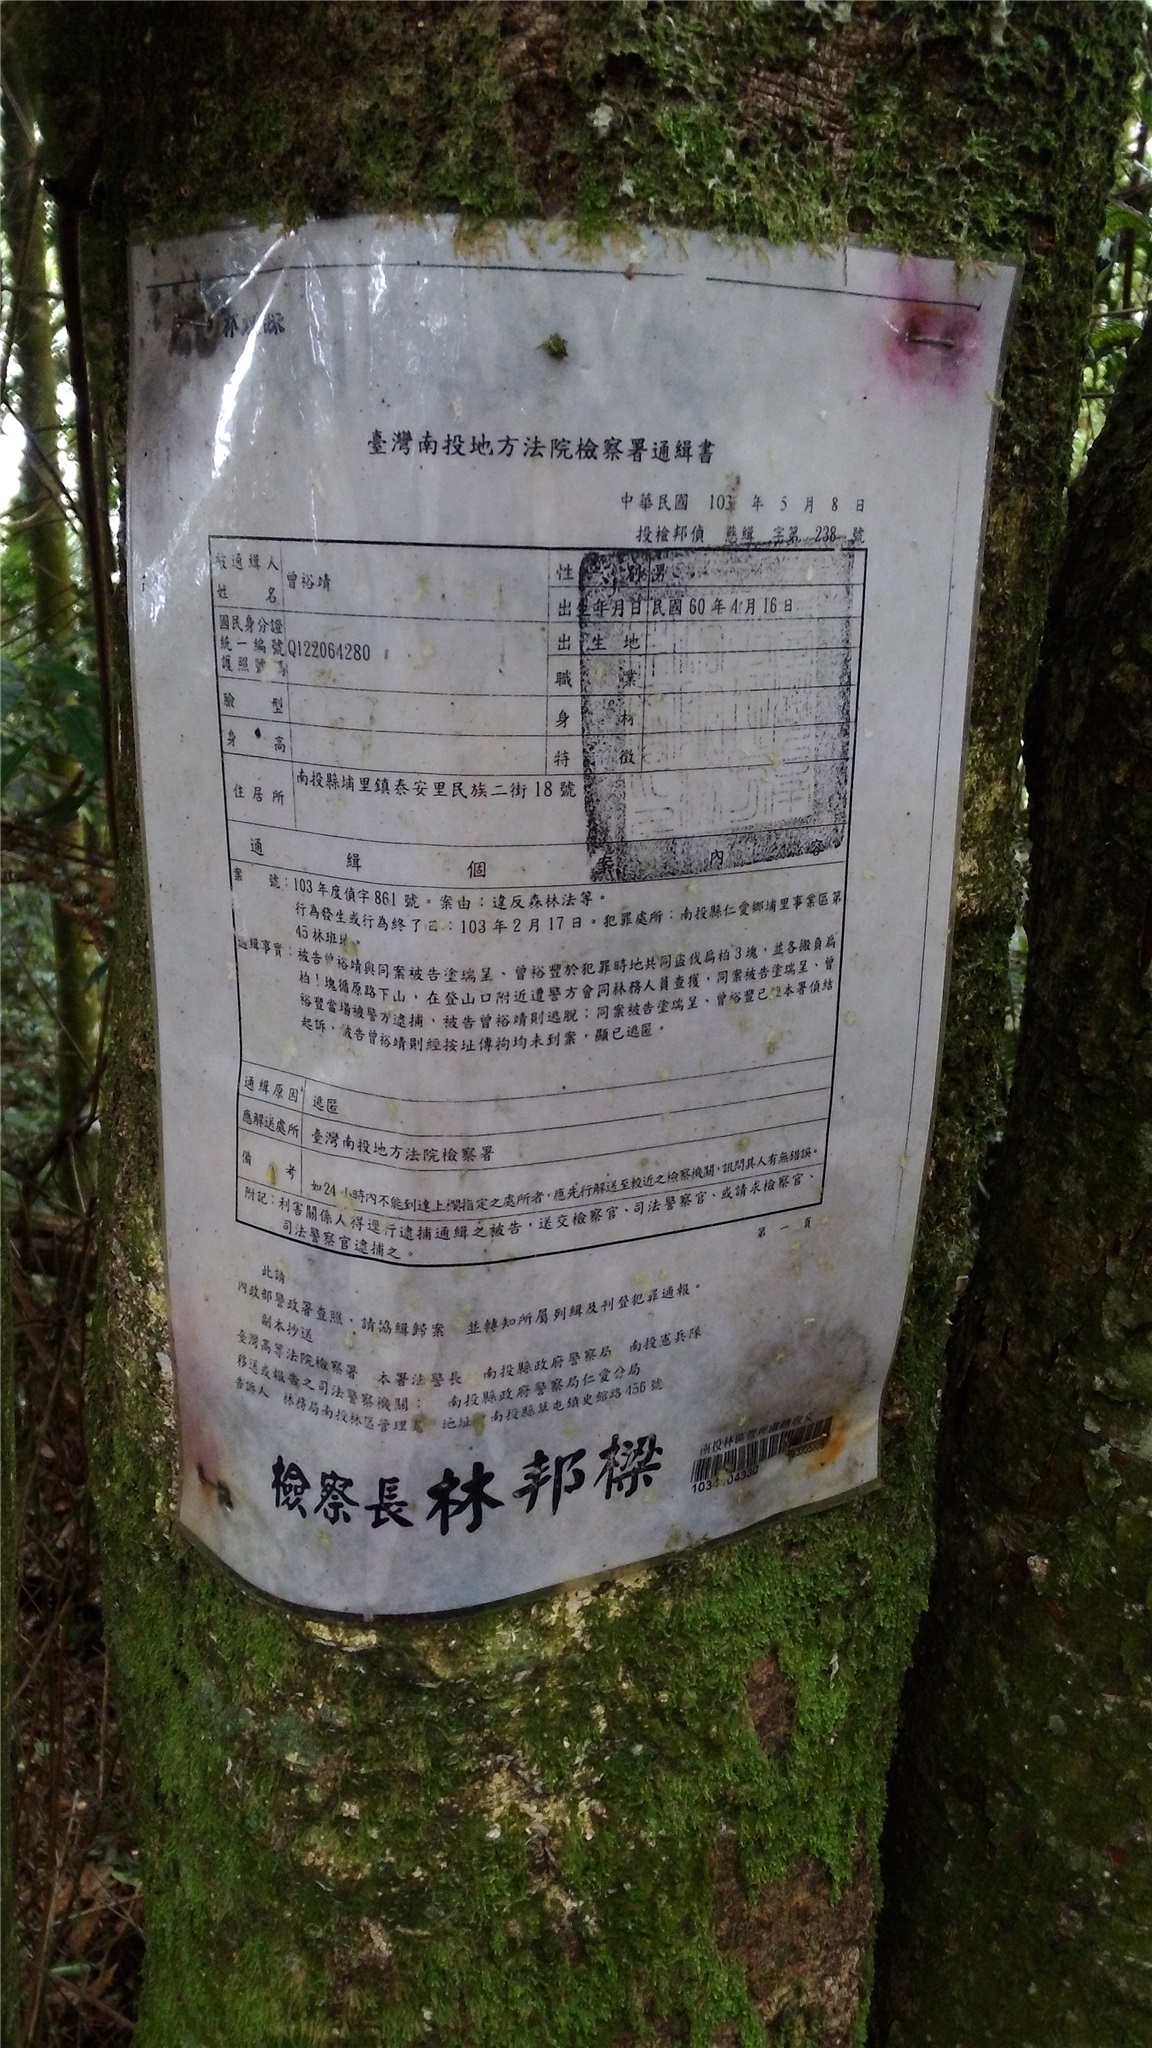 臺灣南投地方法院檢察署通緝書
中華民國 103 年 5 月 8 日
投檢邦偵 緝 字第 238 號
被通緝人姓名 曾裕靖 性別 男
出生年月日 民國60年4月16日
國民身分證統一編號 護照號 Q122064280 出生地
職業
臉型 身材
身高 特徵
住居所 南投縣埔里鎮泰安里民族二街18號
通緝個案內容
案號：103年度偵字861號。案由：違反森林法等。
行為發生或行為終了日：103年2月17日。犯罪處所：南投縣仁愛鄉埔里事業區第
45林班地。
通緝事實：被告曾裕靖與同案被告塗瑞呈、曾裕豐於犯罪時地共同盜伐扁柏3塊，並各搬負扁
柏1塊循原路下山，在登山口附近遭警方會同林務人員查獲，同案被告塗瑞呈、曾
裕豐當場被警方逮捕，被告曾裕靖則逃脫；同案被告塗瑞呈、曾裕豐已 本署偵結
起訴，被告曾裕靖則經按址傳拘均未到案，顯已逃匿。
通緝原因 逃匿
應解送處所 臺灣南投地方法院檢察署
備考 如24小時內不能到達上欄指定之處所者，應先行解送至較近之檢察機關，訊問其人有無錯誤。
附記：利害關係人得逕行逮捕通緝之被告，送交檢察官、司法警察官、或請求檢察官、
司法警察官逮捕之。
第一頁
此請
內政部警政署查照，請協緝歸案 並轉知所屬列緝及刊登犯罪通報。
副本抄送
臺灣高等法院檢察署 本署法警長 南投縣政府警察局 南投憲兵隊
移送或報告之司法警察機關： 南投縣政府警察局仁愛分局
告訴人 林務局南投林區管理處 地址：南投縣草屯鎮史館路456號
檢察長林邦樑
南投林區管理處總收文